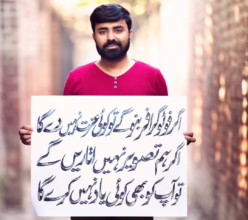 اگر فوٹوگرافر بنو گے تو کوئی عزت نہیں دے گا
اگر ہم تصویر نہیں اتاریں گے
تو آپ کو بھی کوئی یاد نہیں کرے گا